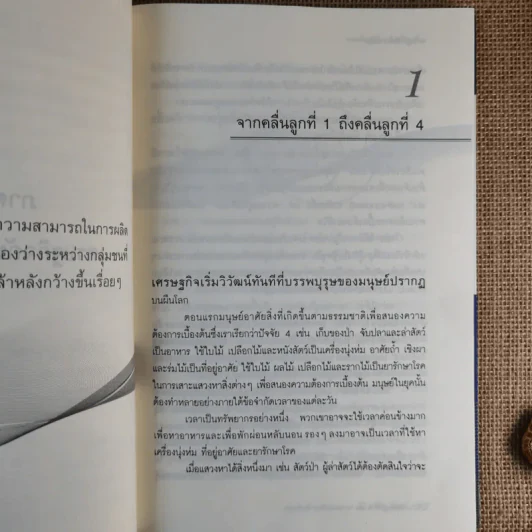 วามสามารถในการผลิต
องว่างระหว่างกลุ่มชนที่
ล้าหลังกว้างขึ้นเรื่อยๆ
1
จากคลื่นลูกที่ 1 ถึงคลื่นลูกที่ 4
เศรษฐกิจเริ่มวิวัฒน์ทันทีที่บรรพบุรุษของมนุษย์ปรากฏ
บนผืนโลก
ตอนแรกมนุษย์อาศัยสิ่งที่เกิดขึ้นตามธรรมชาติเพื่อสนองความ
ต้องการเบื้องต้นซึ่งเราเรียกว่าปัจจัย 4 เช่น เก็บของป่า จับปลาและล่าสัตว์
เป็นอาหาร ใช้ใบไม้ เปลือกไม้และหนังสัตว์เป็นเครื่องนุ่งห่ม อาศัยถ้ำ เชิงผา
และร่มไม้เป็นที่อยู่อาศัย ใช้ใบไม้ ผลไม้ เปลือกไม้และรากไม้เป็นยารักษาโรค
ในการเสาะแสวงหาสิ่งต่างๆ เพื่อสนองความต้องการเบื้องต้น มนุษย์ในยุคนั้น
ต้องทำหลายอย่างภายใต้ข้อจำกัดเวลาของแต่ละวัน
เวลาเป็นทรัพยากรอย่างหนึ่ง พวกเขาอาจจะใช้เวลาค่อนข้างมาก
เพื่อหาอาหารและเพื่อพักผ่อนหลับนอน รองๆ ลงมาอาจเป็นเวลาที่ใช้หา
เครื่องนุ่งห่ม ที่อยู่อาศัยและยารักษาโรค
เมื่อแสวงหาได้สิ่งหนึ่งมา เช่น สัตว์ป่า ผู้ล่าสัตว์ได้ต้องตัดสินใจว่าจะ